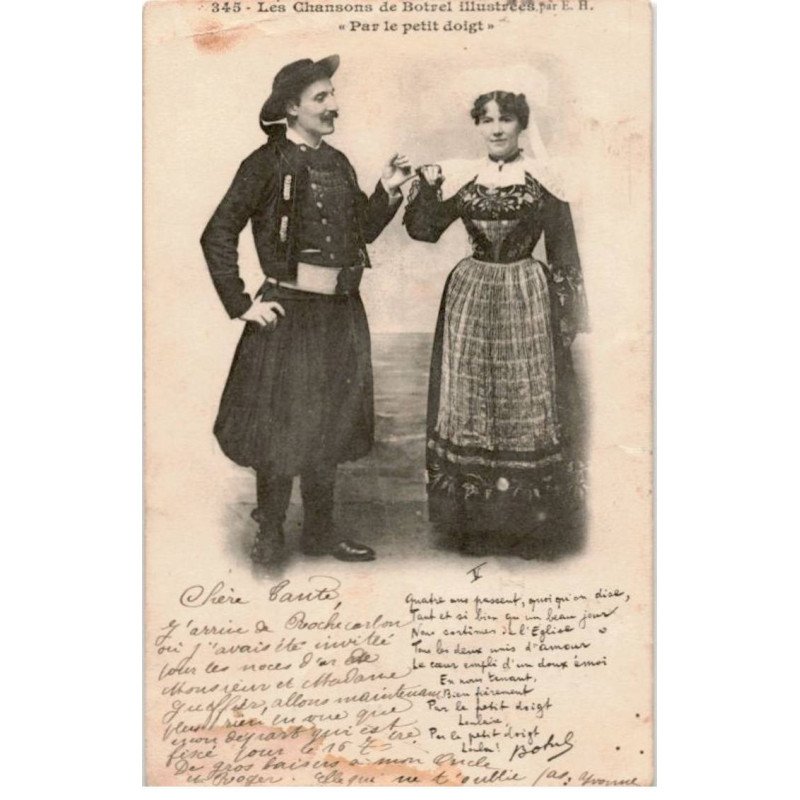 345 - Les Chansons de Botrel illustrées par E. H.
« Par le petit doigt »
V
Quatre ans passent, quoi qu'on dise,
Tant et si bien qu'un beau jour
Nous sortîmes de l'Eglise
Tous les deux unis d'amour
Le cœur empli d'un doux émoi
En nous tenant,
Bien fièrement
Par le petit doigt
Lonlaire,
Par le petit doigt
Lonla!
Botrel
Chère Tante,
J'arrive de Rochecorbon
où j'avais été invitée
pour les noces d'or de
Monsieur et Madame
allons maintenant
plus rien en vue que
mon départ qui est
fixé pour le 16 t
De gros baisers à mon Oncle
et Roger. Elle qui ne t'oublie pas: Yvonne